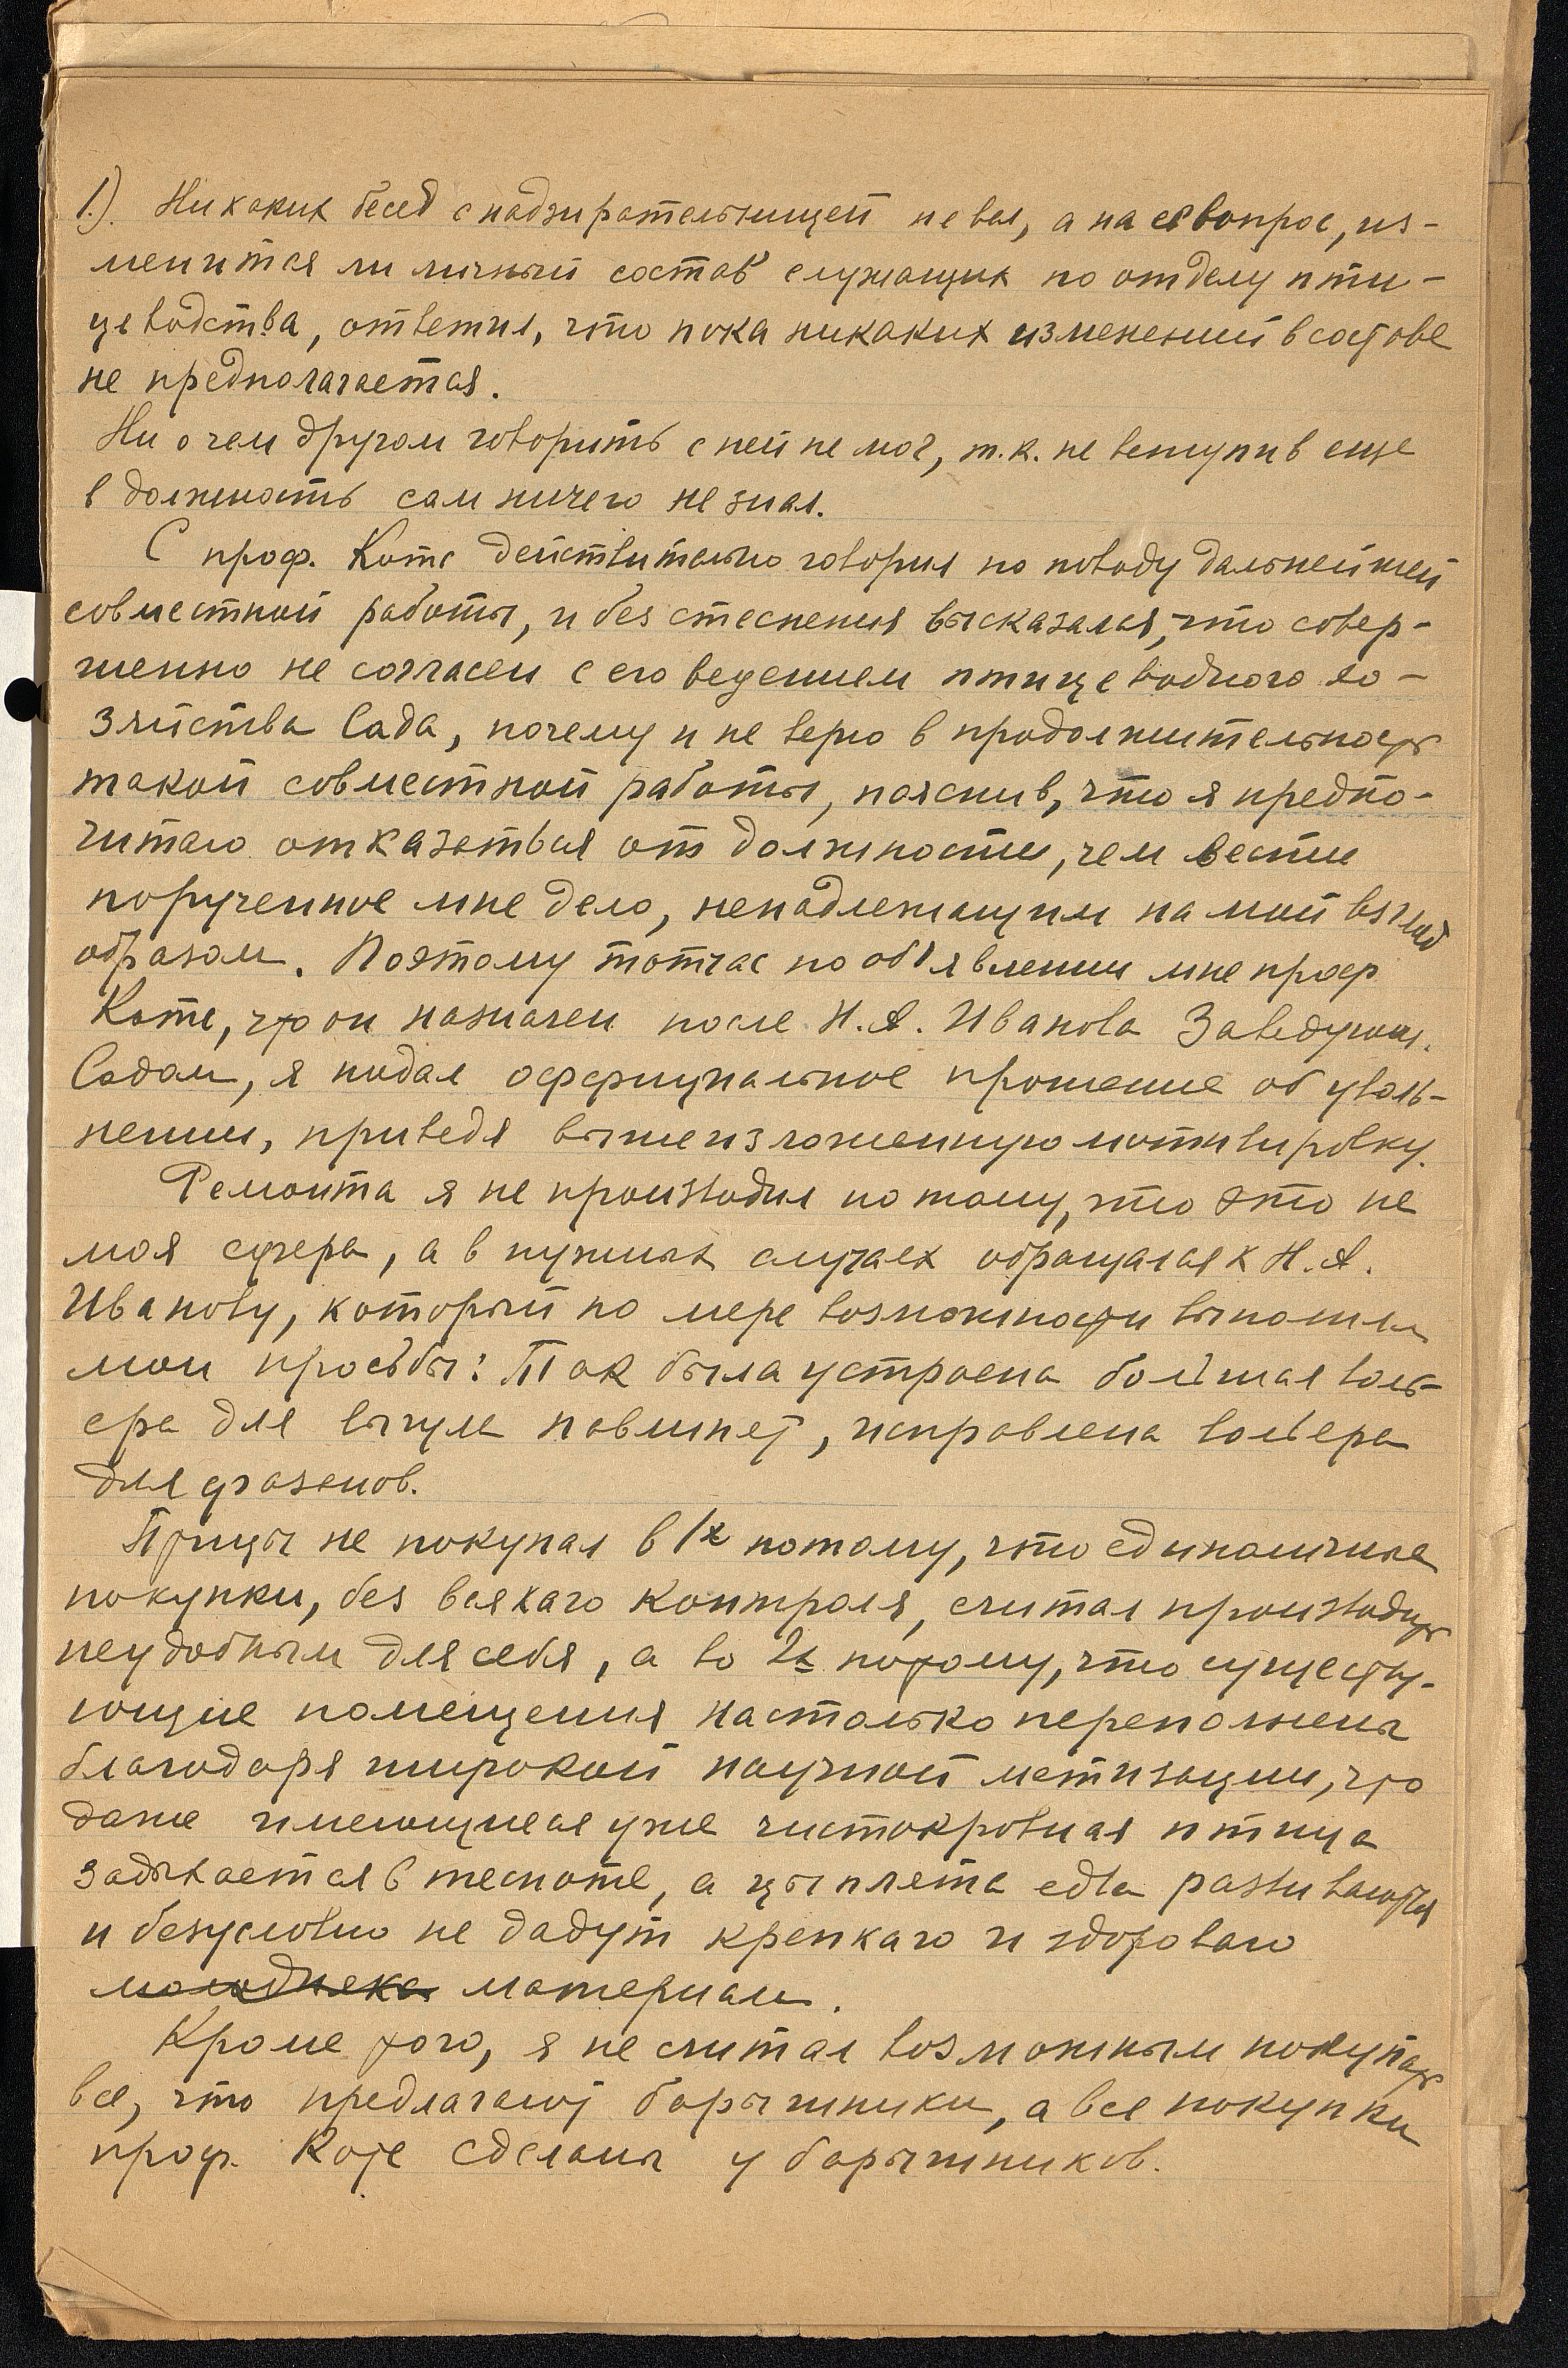 1.). Никаких бесед с надзирательницей не вел, а на её вопрос, из-
менится ли личный состав служащих по отделу пти-
цеводства, ответил, что пока никаких изменений в составе
не предполагается.
Ни о чем другом говорить с ней не мог, т.к. не вступив еще
в должность сам ничего не знал.
С проф. Котс действительно говорил по поводу дальнейшей
совместной работы, и без стеснения высказался, что совер-
шенно не согласен с его ведением птицеводного хо-
зяйства Сада, почему и не верю в продолжительность
такой совместной работы, пояснив, что я предпо-
читаю отказаться от должности, чем вести
порученное мне дело, ненадлежащим на мой взгляд
образом. Поэтому тотчас по объявлении мне проф
Котс, что он назначен после Н.А. Иванова Заведующ.
Садом, я подал оффициальное прошение об уволь-
нении, приведя вышеизложенную мотивировку.
Ремонта я не производил потому, что это не
моя сфера, а в нужных случаях обращался к Н.А.
Иванову, который по мере возможности выполнял
мои просьбы: Так была устроена большая воль-
ера для выгула павлинет, исправлена вольера
для фазанов.
Птицы не покупал в 1х потому, что единоличные
покупки, без всякаго контроля, считал производить
неудобным для себя, а во 2х потому, что существу-
ющие помещения настолько переполнены
благодаря широкой научной метизации, что
даже имеющиеся уже чистокровная птица
задыхается в тесноте, а цыплята едва развиваются
и безусловно не дадут крепкаго и здороваго
молодняка материала.
Кроме того, я не считал возможным покупать
все, что предлагают барышники, а все покупки
проф. Коте сделаны у барышников.